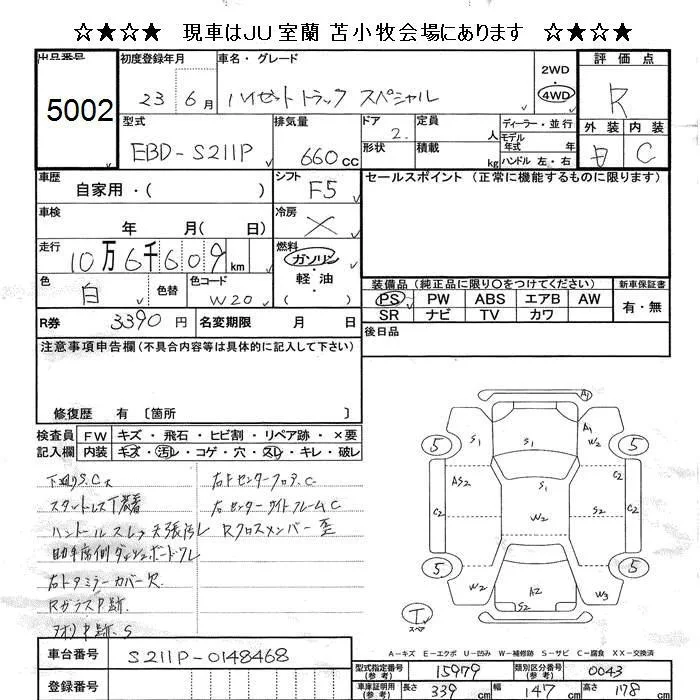 ☆★☆★ 現車はJU室蘭 苫小牧会場にあります ☆★☆★
出品番号 初度登録年月 車名・グレード 評価点
5002 23 6月 ハイゼットトラック スペシャル 2WD 4WD R
型式 排気量 ドア 2. 定員 人 ディーラー・並行 外装 内装
EBD-S211P 660cc 形状 積載 kg モデル年式 年 ハンドル 左・右 C
車歴 自家用・( ) シフト F5 セールスポイント (正常に機能するものに限ります)
車検 年 月( 日) 冷房 ×
走行 10万6千609km 燃料 ガソリン・軽油 ( )
色 白 色替 色コード W20
装備品 (純正品に限り〇をつけてください) 新車保証書
PS PW ABS エアB AW 有・無
SR ナビ TV カワ
R券 3390円 名変期限 月 日 後日品
注意事項申告欄 (不具合内容等は具体的に記入して下さい)
修復歴 有 〔箇所 〕
検査員記入欄 FW キズ・飛石・ヒビ割・リペア跡・×要
内装 キズ・汚レ・コゲ・穴・スレ・キレ・破レ
下廻りS.C大
スタットレスT装着
ハンドルスレ 天張汚レ
助手席側ダッシュボードワレ
右ドアミラーカバー欠
RガラスP跡.
アオリP跡.S
右FセンターフロアC
右センターサイドフレームC
Rクロスメンバー歪
A1
S1 S1 A1 W2
5 5
AS2 S1
C2 W2 S2 C2
5 5
W2 A2 S2 W3
T スペア
A-キズ E-エクボ U-凹み W-補修跡 S-サビ C-腐食 XX-交換済
車台番号 S211P-0148468
登録番号
型式指定番号(参考) 15979 類別区分番号(参考) 0043
車庫証明用(参考) 長さ 339cm 幅 147cm 高さ 178cm